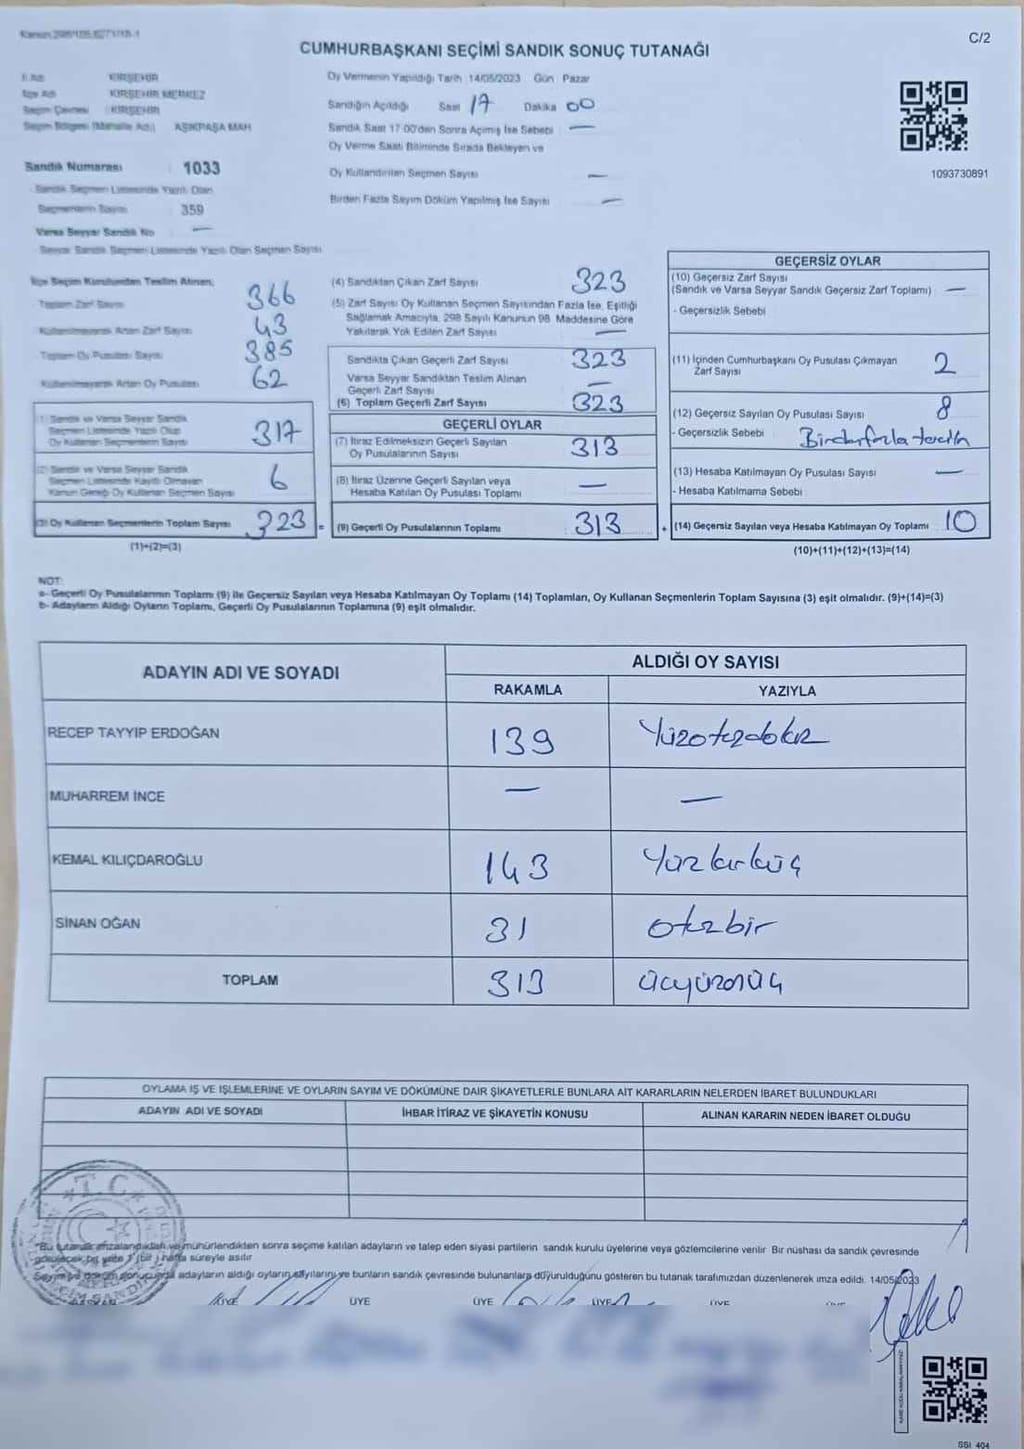 C/2
CUMHURBAŞKANI SEÇİMİ SANDIK SONUÇ TUTANAĞI
İl Adı KIRŞEHİR
İlçe Adı KIRŞEHİR MERKEZ
Seçim Çevresi KIRŞEHİR
Seçim Bölgesi (Mahalle Adı) AŞIKPAŞA MAH
Sandık Numarası : 1033
Sandık Seçmen Listesinde Yazılı Olan
Seçmenlerin Sayısı 359
Varsa Seyyar Sandık No —
Seyyar Sandık Seçmen Listesinde Yazılı Olan Seçmen Sayısı
Oy Vermenin Yapıldığı Tarih 14/05/2023 Gün Pazar
Sandığın Açıldığı Saat 17 Dakika 00
Sandık Saat 17:00'den Sonra Açımış İse Sebebi —
Oy Verme Saati Bitiminde Sırada Bekleyen ve
Oy Kullandırılan Seçmen Sayısı —
Birden Fazla Sayım Döküm Yapılmış İse Sayısı —
1093730891
İlçe Seçim Kurulundan Teslim Alınan;
Toplam Zarf Sayısı 366
Kullanılmayarak Artan Zarf Sayısı 43
Toplam Oy Pusulası Sayısı 385
Kullanılmayarak Artan Oy Pusulası 62
(1) Sandık ve Varsa Seyyar Sandık
Seçmen Listesinde Yazılı Olup
Oy Kullanan Seçmenlerin Sayısı 317
(2) Sandık ve Varsa Seyyar Sandık
Seçmen Listesinde Kayıtlı Olmayan
Kanun Gereği Oy Kullanan Seçmen Sayısı 6
(3) Oy Kullanan Seçmenlerin Toplam Sayısı 323 =
(1)+(2)=(3)
(4) Sandıktan Çıkan Zarf Sayısı 323
(5) Zarf Sayısı Oy Kullanan Seçmen Sayısından Fazla İse, Eşitliği
Sağlamak Amacıyla, 298 Sayılı Kanunun 98. Maddesine Göre
Yakılarak Yok Edilen Zarf Sayısı —
Sandıkta Çıkan Geçerli Zarf Sayısı 323
Varsa Seyyar Sandıktan Teslim Alınan
Geçerli Zarf Sayısı —
(6) Toplam Geçerli Zarf Sayısı 323
GEÇERLİ OYLAR
(7) İtiraz Edilmeksizin Geçerli Sayılan
Oy Pusulalarının Sayısı 313
(8) İtiraz Üzerine Geçerli Sayılan veya
Hesaba Katılan Oy Pusulası Toplamı —
(9) Geçerli Oy Pusulalarının Toplamı 313 +
GEÇERSİZ OYLAR
(10) Geçersiz Zarf Sayısı
(Sandık ve Varsa Seyyar Sandık Geçersiz Zarf Toplamı) —
- Geçersizlik Sebebi
(11) İçinden Cumhurbaşkanı Oy Pusulası Çıkmayan
Zarf Sayısı 2
(12) Geçersiz Sayılan Oy Pusulası Sayısı 8
- Geçersizlik Sebebi Birdenfazla tercih
(13) Hesaba Katılmayan Oy Pusulası Sayısı —
- Hesaba Katılmama Sebebi
(14) Geçersiz Sayılan veya Hesaba Katılmayan Oy Toplamı 10
(10)+(11)+(12)+(13)=(14)
NOT:
a- Geçerli Oy Pusulalarının Toplamı (9) ile Geçersiz Sayılan veya Hesaba Katılmayan Oy Toplamı (14) Toplamları, Oy Kullanan Seçmenlerin Toplam Sayısına (3) eşit olmalıdır. (9)+(14)=(3)
b- Adayların Aldığı Oyların Toplamı, Geçerli Oy Pusulalarının Toplamına (9) eşit olmalıdır.
ADAYIN ADI VE SOYADI ALDIĞI OY SAYISI
RAKAMLA YAZIYLA
RECEP TAYYİP ERDOĞAN 139 Yüzotuzdokuz
MUHARREM İNCE — —
KEMAL KILIÇDAROĞLU 143 Yüzkırküç
SİNAN OĞAN 31 otuzbir
TOPLAM 313 üçyüzonüç
OYLAMA İŞ VE İŞLEMLERİNE VE OYLARIN SAYIM VE DÖKÜMÜNE DAİR ŞİKAYETLERLE BUNLARA AİT KARARLARIN NELERDEN İBARET BULUNDUKLARI
ADAYIN ADI VE SOYADI İHBAR İTİRAZ VE ŞİKAYETİN KONUSU ALINAN KARARIN NEDEN İBARET OLDUĞU
T.C.
*Bu tutanak imzalandıktan ve mühürlendikten sonra seçime katılan adayların ve talep eden siyasi partilerin sandık kurulu üyelerine veya gözlemcilerine verilir. Bir nüshası da sandık çevresinde
görülecek bir yerde 1 (bir) hafta süreyle asılır.
Sayım ve döküm sonucunda adayların aldığı oyların sayılarını ve bunların sandık çevresinde bulunanlara duyurulduğunu gösteren bu tutanak tarafımızdan düzenlenerek imza edildi. 14/05/2023
ÜYE ÜYE ÜYE ÜYE ÜYE
SSI 404